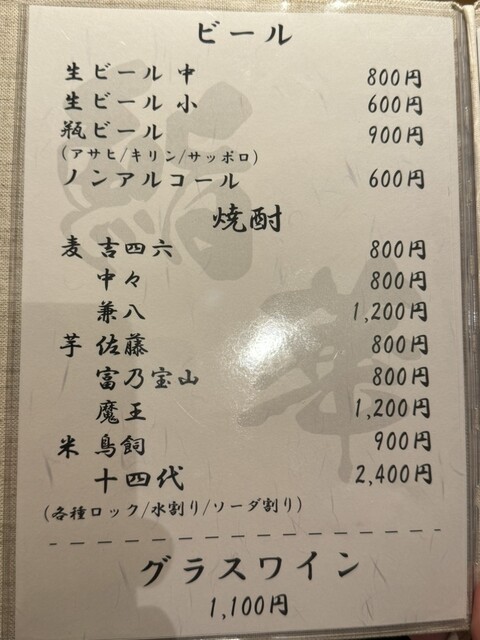 ビール
生ビール 中 800円
生ビール 小 600円
瓶ビール 900円
(アサヒ/キリン/サッポロ)
ノンアルコール 600円
焼酎
麦 吉四六 800円
中々 800円
兼八 1,200円
芋 佐藤 800円
富乃宝山 800円
魔王 1,200円
米 鳥飼 900円
十四代 2,400円
(各種ロック/水割り/ソーダ割り)
グラスワイン
1,100円